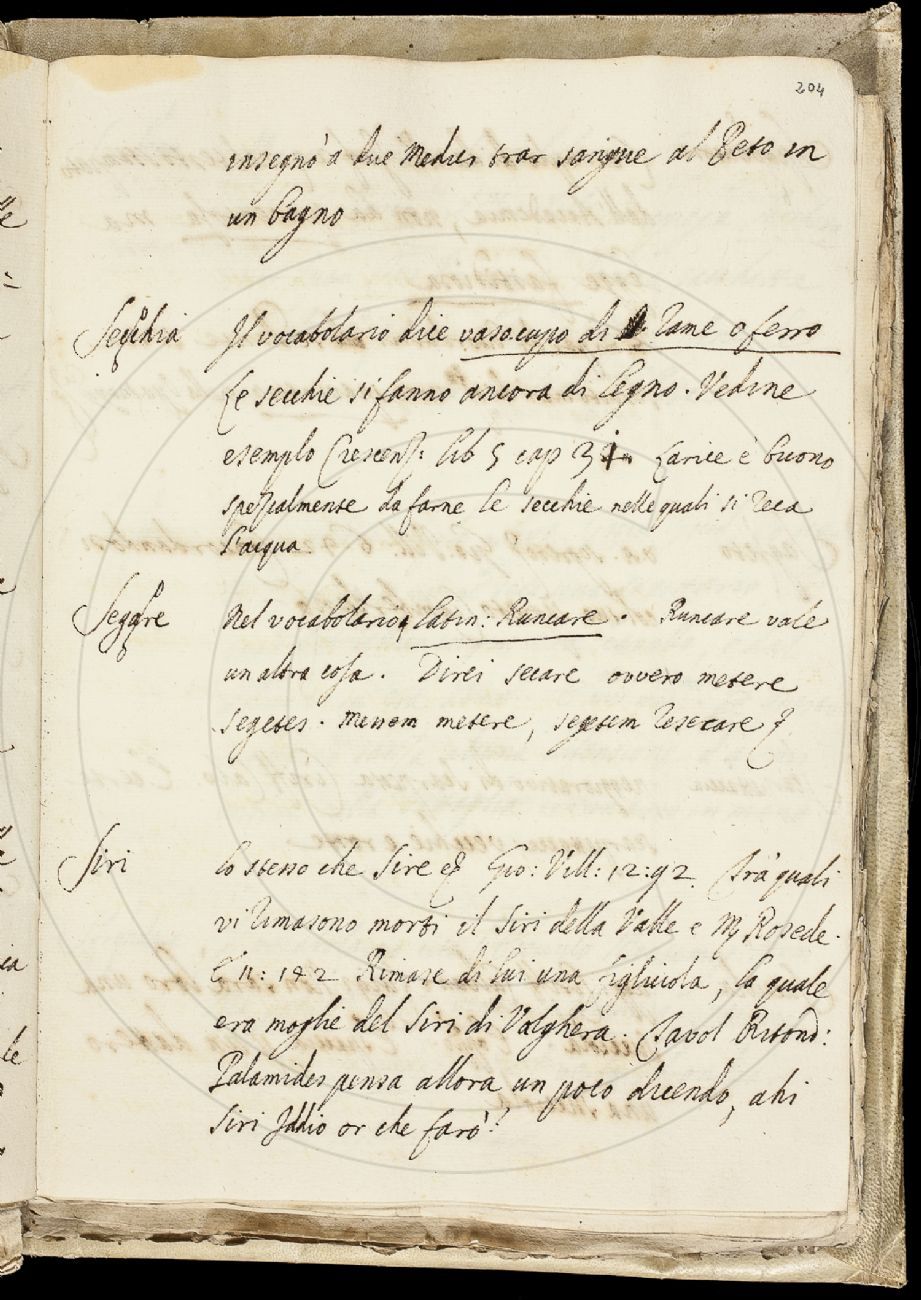 204
insegnò a due Medici trar sangue al Peto in
un bagno
Secchia Il vocabolario dice vaso cupo di Rame o ferro
Le secchie si fanno ancora di legno. Vedine
esempio Crescenz: lib 5 cap Larice è buono
spezialmente da farne le secchie nelle quali si reca
l'acqua
Segare Nel vocabolario latin: Runcare. Runcare vale
un altra cosa. Direi secare ovvero metere
segetes. messem metere, segetem resecare
Siri lo stesso che Sire Gio: Vill: 12:92. Tra quali
vi rimasono morti il Siri della Valle e Rosede.
E n: 142 Rimase di lui una figliuola, la quale
era moglie del Siri di Valghera. Tavol Ritond:
Palamides pensa allora un poco dicendo, ahi
Siri Iddio or che farò?